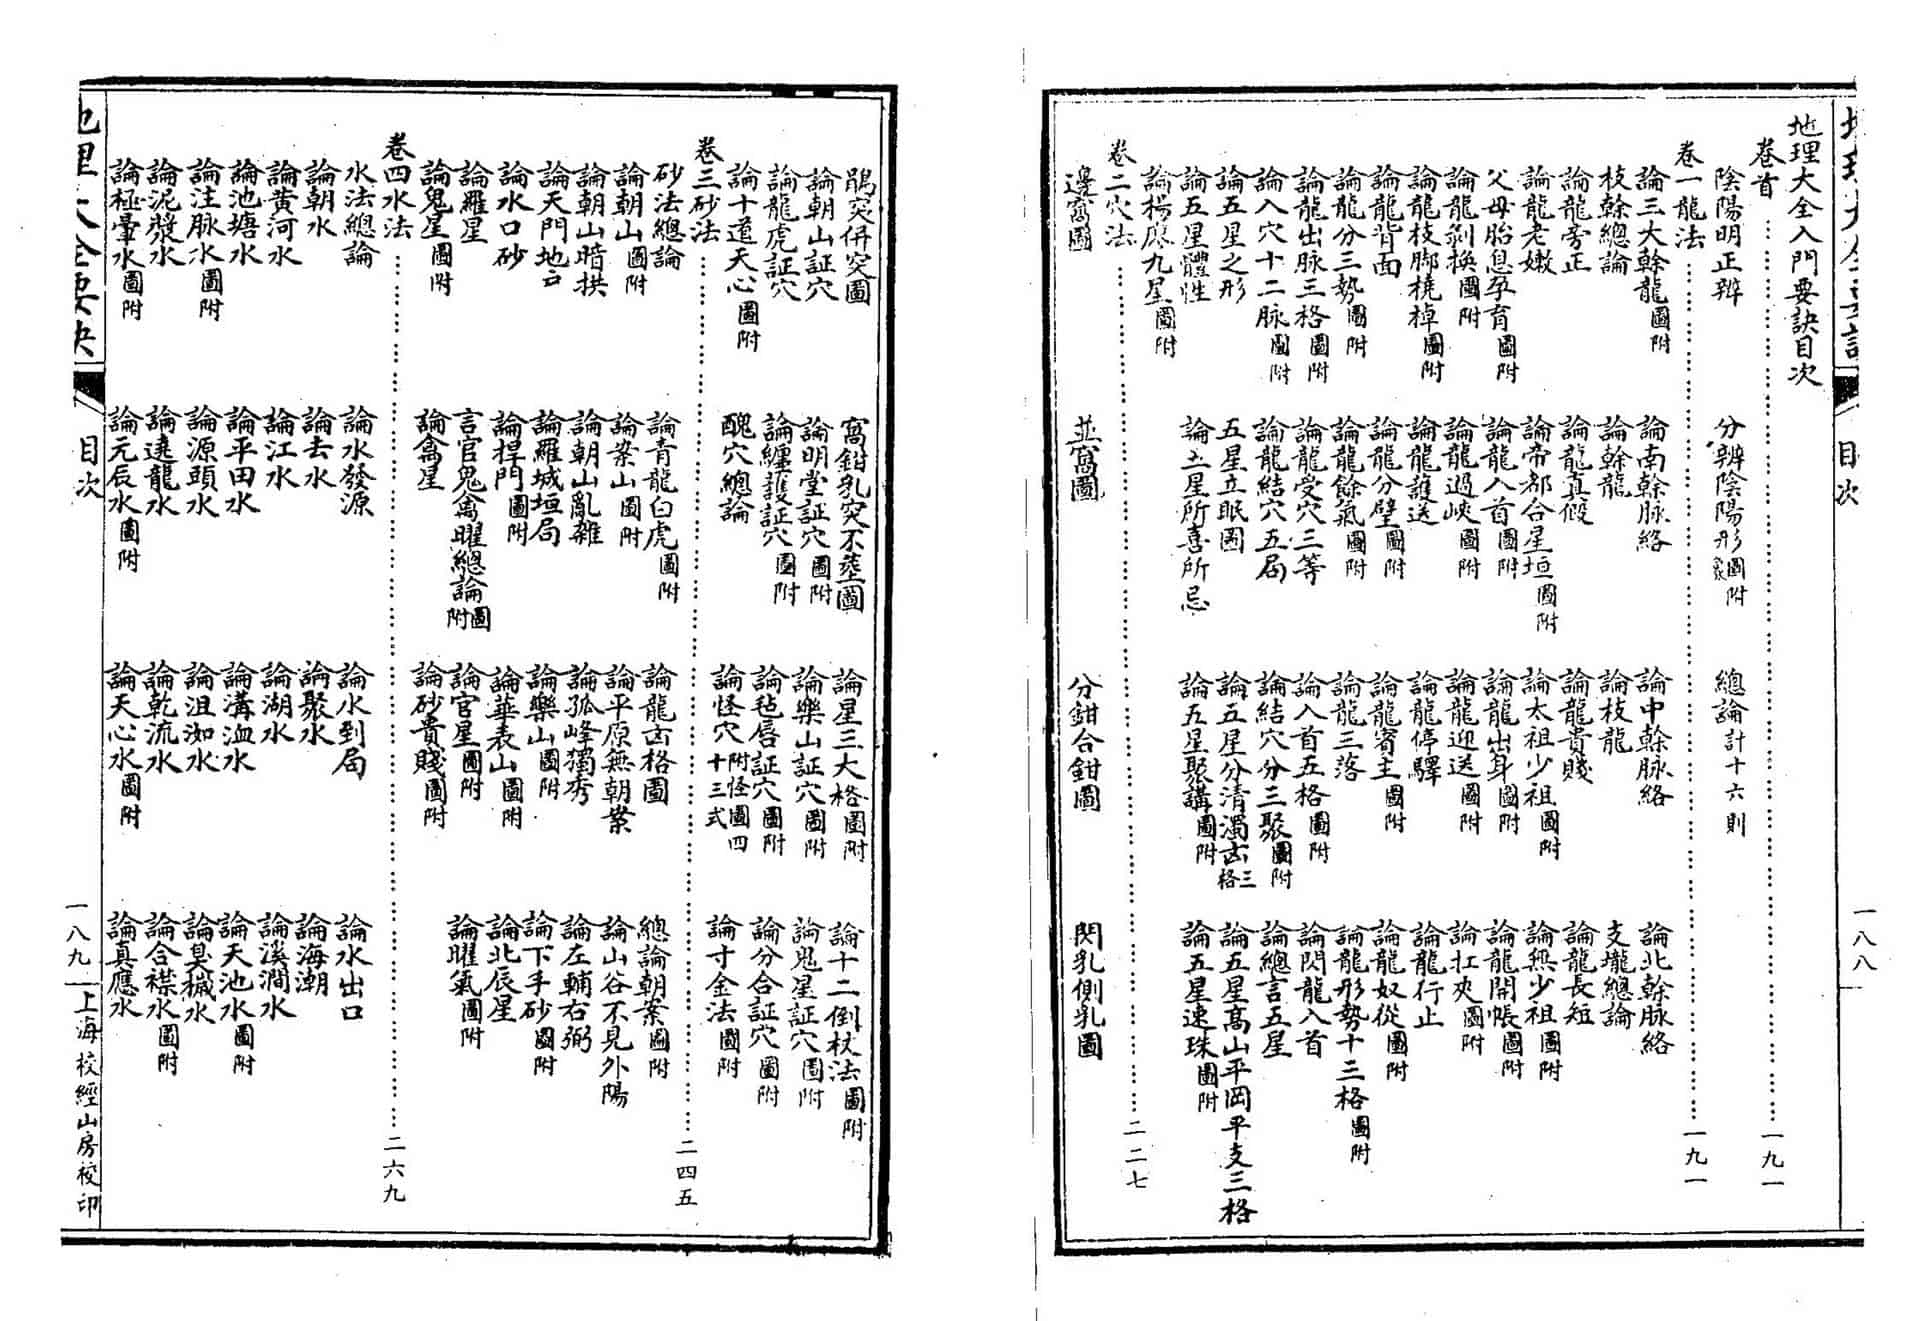 目次 一八八
地理大全入門要訣目次
卷首 一九一
陰陽明正辨 分辨陰陽形象圖附 總論計十六則
卷一龍法 一九一
論三大榦龍圖附 論南榦脉絡 論中榦脉絡 論北榦脉絡
枝榦總論 論榦龍 論枝龍 支壠總論
論龍旁正 論龍真假 論龍貴賤 論龍長短
論龍老嫩 論帝都合星垣圖附 論太祖少祖圖附 論無少祖圖附
父母胎息孕育圖附 論龍入首圖附 論龍出身圖附 論龍開帳圖附
論龍剝換圖附 論龍過峽圖附 論龍迎送圖附 論扛夾圖附
論龍枝脚橈棹圖附 論龍護送 論龍停驛 論龍行止
論龍背面 論龍分劈圖附 論龍賓主圖附 論龍奴從圖附
論龍分三勢圖附 論龍餘氣圖附 論龍三落 論龍形勢十三格圖附
論龍出脉三格圖附 論龍受穴三等 論入首五格圖附 論閃龍入首
論入穴十二脉圖附 論龍結穴五局 論結穴分三聚圖附 論總言五星
論五星之形 五星立眠圖 論五星分清濁吉三格 論五星高山平岡平支三格
論五星體性 論五星所喜所忌 論五星聚講圖附 論五星連珠圖附
論楊廖九星圖附
卷二穴法 二二七
邊窩圖 並窩圖 分鉗合鉗圖 閃乳側乳圖
鶻突併突圖 窩鉗乳突不塟圖 論星三大格圖附 論十二倒杖法圖附
論朝山証穴 論明堂証穴圖附 論樂山証穴圖附 論鬼星証穴圖附
論龍虎証穴 論纏護証穴圖附 論毡唇証穴圖附 論分合証穴圖附
論十道天心圖附 醜穴總論 論怪穴附怪圖四十三式 論寸金法圖附
卷三砂法 二四五
砂法總論 論青龍白虎圖附 論龍吉格圖 總論朝案圖附
論朝山圖附 論案山圖附 論平原無朝案 論山谷不見外陽
論朝山暗拱 論朝山亂雜 論孤峰獨秀 論左輔右弼
論天門地戶 論羅城垣局 論樂山圖附 論下手砂圖附
論水口砂 論捍門圖附 論華表山圖附 論北辰星
論羅星 言官鬼禽曜總論圖附 論官星圖附 論曜氣圖附
論鬼星圖附 論禽星 論砂貴賤圖附
卷四水法 二六九
水法總論 論水發源 論水到局 論水出口
論朝水 論去水 論聚水 論海潮
論黃河水 論江水 論湖水 論溪澗水
論池塘水 論平田水 論溝洫水 論天池水圖附
論注脉水圖附 論源頭水 論沮洳水 論臭穢水
論泥漿水 論遶龍水 論乾流水 論合襟水圖附
論極暈水圖附 論元辰水圖附 論天心水圖附 論真應水
地理大全要訣 目次 一八九 上海校經山房校印